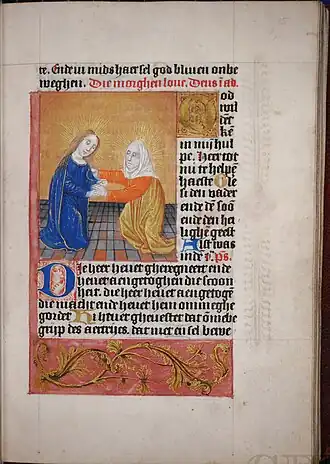 re. Ende in mids haer sel god bliven onbe
weghen. Die morghen love. Deus i ad.
God
wil
dēc
kē
in mijn hul
pe. Heer tot
mi te helpē
haeste Gle
si den vader
ende dē soō
ende den ha
lighē geest
Alst was
inde ps.
Die heer hevet gheregneert ende
hevet aengetoghen die scoon
heit. die heer hevet aengetogē
die macht ende hevet hem omeghe
gordet Hi hevet ghevestet dat ōmebe
grijp des aertrijcs. dat niet en sel bewe